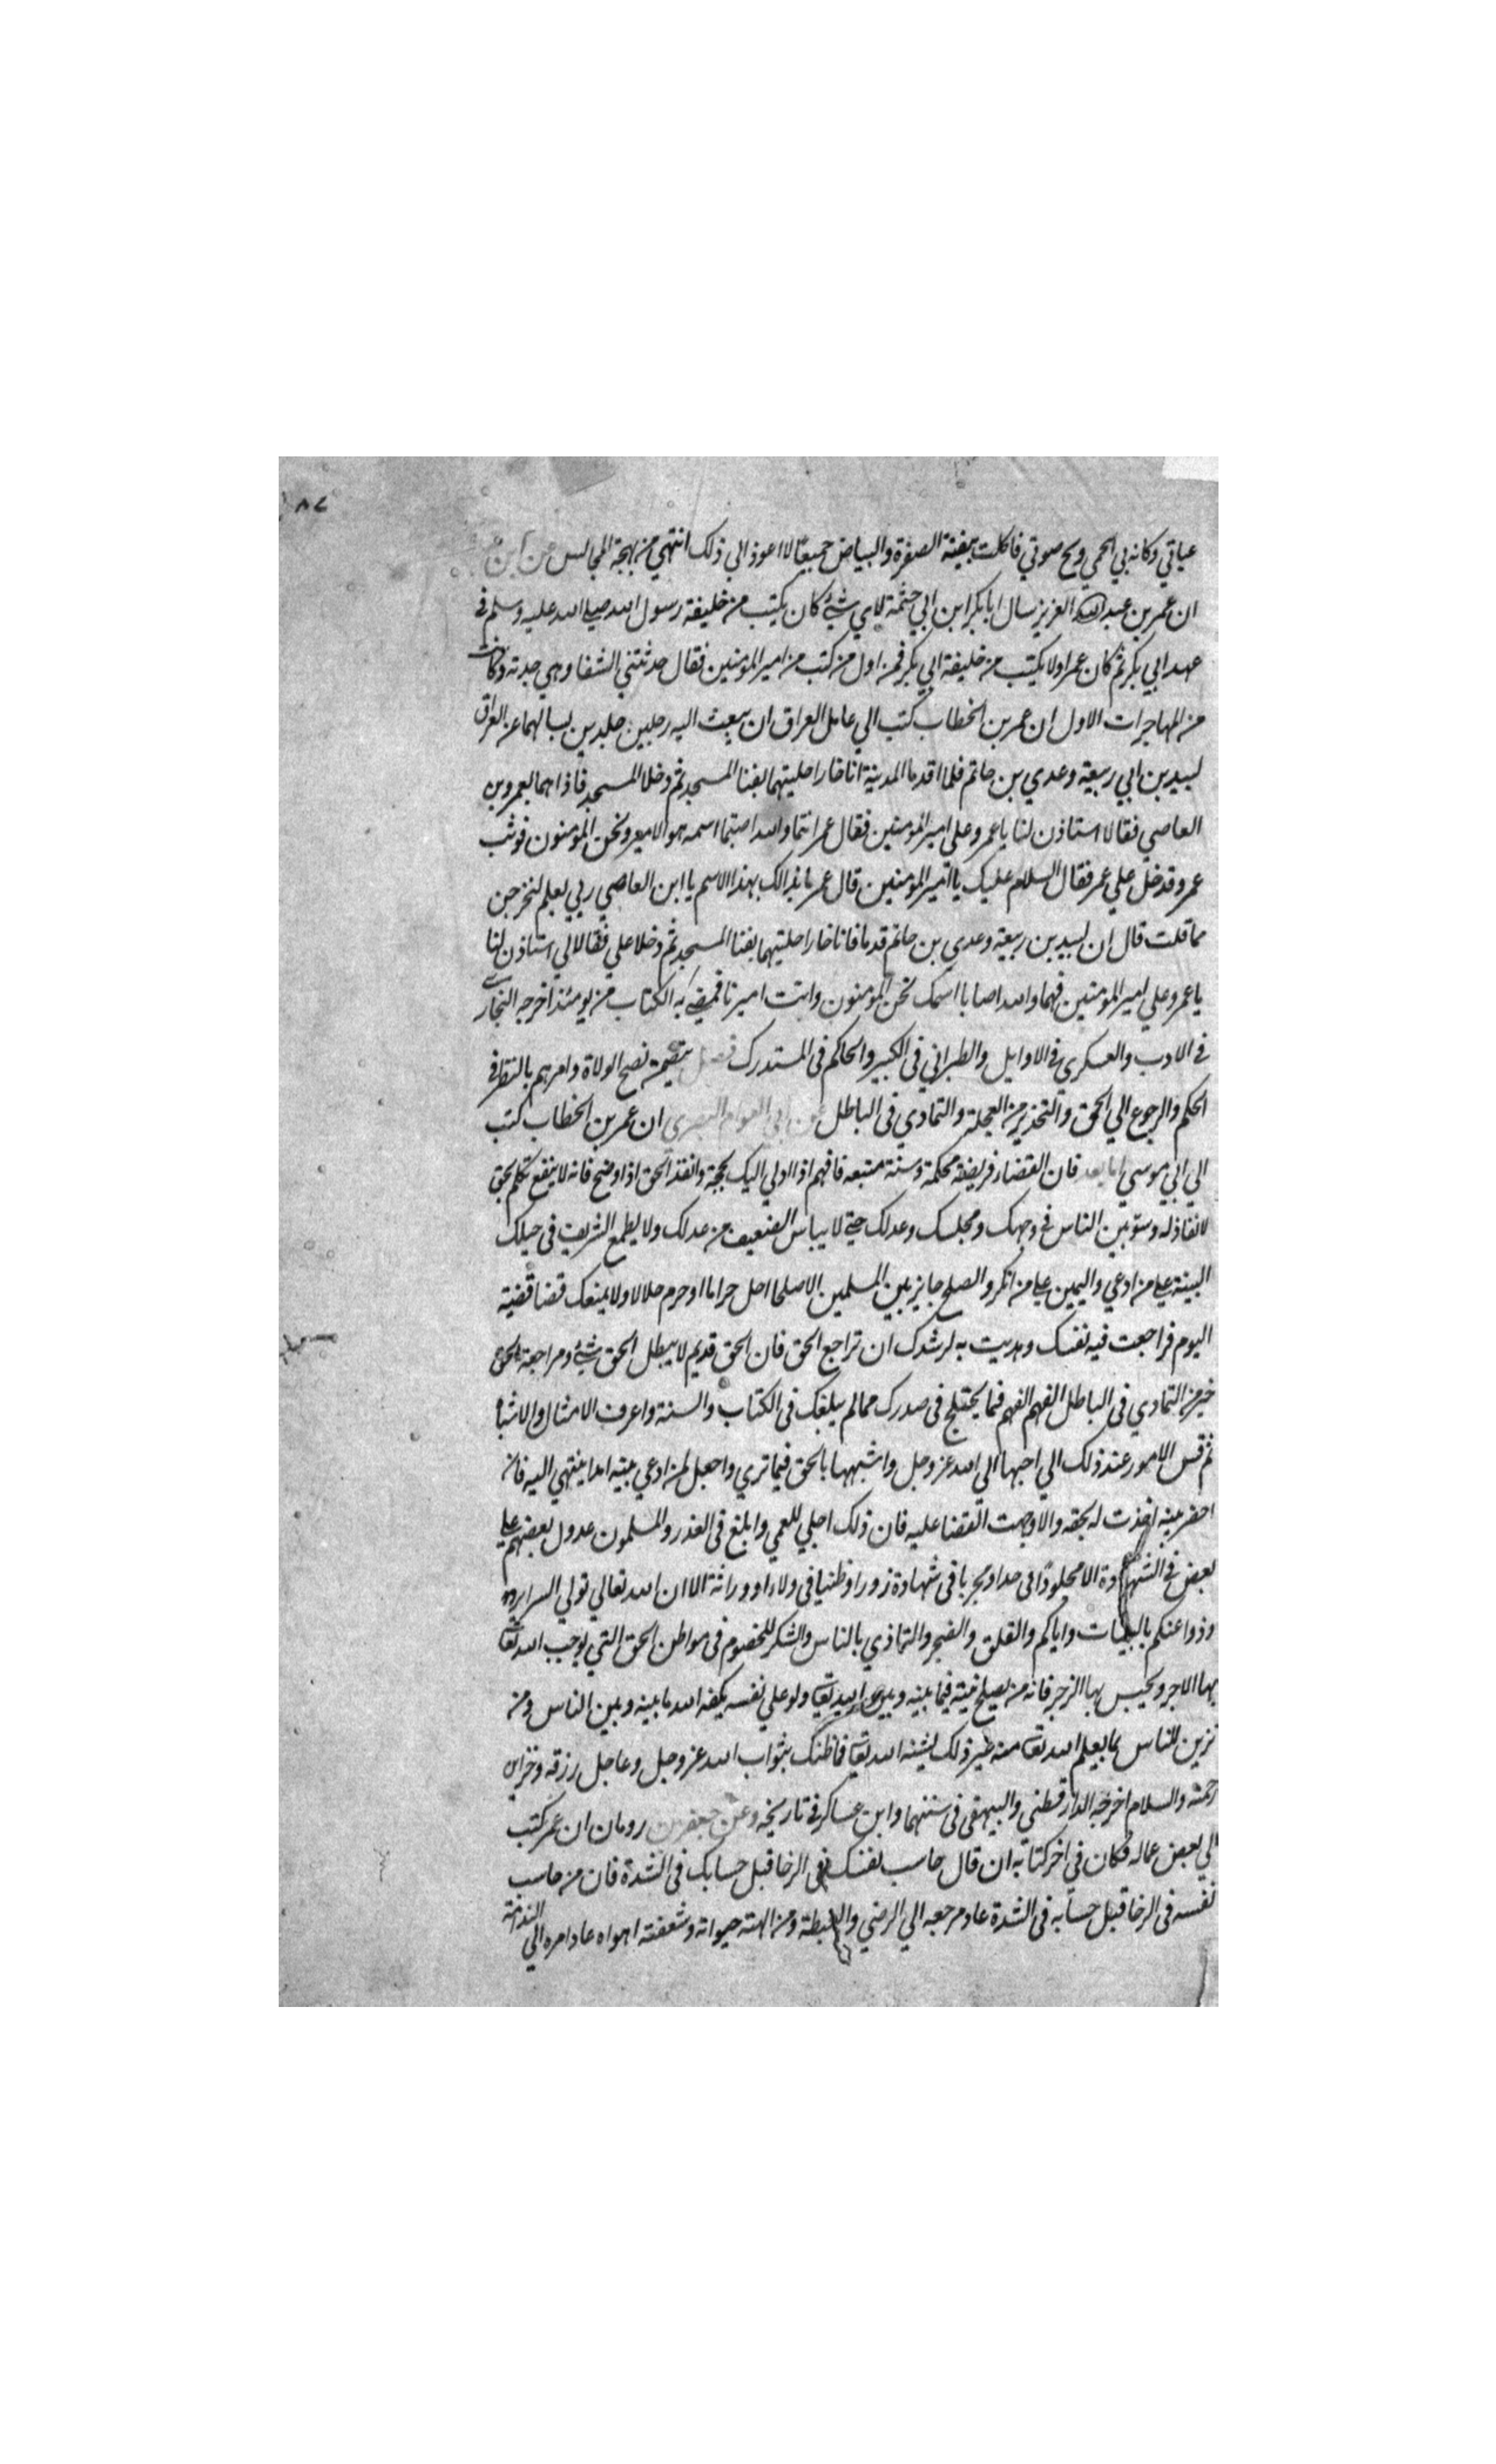 ٨٧
عباتي وكانه بي الحمي وبح صوتي فاكلت بيضة الصفرة والبياض جميعا لا اعوذ الي ذلك انتهي من بهجة المجالس عن ابن
ان عمر بن عبد العزيز سال ابا بكر ابن ابي حثمة لاي شئ كان يكتب من خليفة رسول الله صلي الله عليه وسلم في
عهد ابي بكر ثم كان عمر اولا يكتب من خليفة ابي بكر فمن اول من كتب من امير المومنين فقال حدثتني الشفا وهي جدته وكانت
من المهاجرات الاول ان عمر بن الخطاب كتب الي عامل العراق ان يبعث اليه رجلين جلدين يسالهما عن العراق
لبيد بن ابي ربيعة وعدي بن حاتم فلما اقدما المدينة اناخا راحلتيهما بفنا المسجد ثم دخلا المسجد فاذا هما بعمرو بن
العاصي فقالا استاذن لنا يا عمرو علي امير المومنين فقال عمر انتما والله اصبتما اسمه هو الامير ونحن المومنون فوثب
عمرو فدخل علي عمر فقال السلام عليك يا امير المومنين قال عمر ما بدا لك بهذا الاسم يا ابن العاصي ربي يعلم لتخرجن
مما قلت قال ان لبيد بن ربيعة وعدي بن حاتم قدما فاناخا راحلتيهما بفنا المسجد ثم دخلا علي فقالا لي استاذن لنا
يا عمرو علي امير المومنين فهما والله اصابا اسمك نحن المومنون وانت اميرنا فمضي به الكتاب من يومئذ اخرجه البخاري
في الادب والعسكري في الاوايل والطبراني في الكبير والحاكم في المستدرك فصل نصح الولاة وامرهم بالنظر في
الحكم والرجوع الي الحق والتحذير من العجلة والتمادي في الباطل عن ابي العوام البصري ان عمر بن الخطاب كتب
الي ابي موسي اما بعد فان القضاء فريضة محكمة وسنة متبعه فافهم اذا ادلي اليك بحجة وانفذ الحق اذا وضح فانه لا ينفع تكلم بحق
لا نفاذ له وسو بين الناس في وجهك ومجلسك وعدلك حتي لا يياس الضعيف من عدلك ولا يطمع الشريف في حيلك
البينة علي من ادعي واليمين علي من انكر والصلح جايز بين المسلمين الا صلحا احل حراما او حرم حلالا ولا يمنعك قضا قضيته
اليوم فراجعت فيه نفسك وهديت به لرشدك ان تراجع الحق فان الحق قديم لا يبطل الحق شئ ومراجعة الحق
خير من التمادي في الباطل الفهم الفهم فيما يختلج في صدرك مما لم يبلغك في الكتاب والسنة واعرف الامثال والاشباه
ثم قس الامور عند ذلك الي احبها الي الله عز وجل واشبهها بالحق فيما تري واجعل لمن ادعي بينه امدا ينتهي اليه فان
احضر بينه اخذت له بحقه والا وجهت القضا عليه فان ذلك اجلي للعمي وابلغ في العذر والمسلمون عدول بعضهم علي
بعض في الشهادة الا مجلودا في حد او مجربا في شهادة زور او ظنينا في ولاء او وراثة الا ان الله تعالي تولي السراير
وذوا عنكم بالبينات واياكم والقلق والضجر والتماذي بالناس والشكر للخصوم في مواطن الحق التي يوجب الله تعالي
بها الاجر ويحبس بها الزجر فانه من يصلح نيته فيما بينه وبين الله تعالي ولو علي نفسه يكفه الله ما بينه وبين الناس ومن
تزين للناس بما يعلم الله تعالي منه غير ذلك يشنه الله تعالي فما ظنك بثواب الله عز وجل وعاجل رزقه وخزاين
رحمته والسلام اخرجه الدارقطني والبيهقي في سننهما وابن عساكر في تاريخه وعن جعفر بن رومان ان عمر كتب
الي بعض عماله فكان في اخر كتابه ان قال حاسب نفسك في الرخا قبل حسابك في الشدة فان من حاسب
نفسه في الرخا قبل حسابه في الشدة عاد مرجعه الي الرضي والغبطة ومن الهته حيواته وشغفته اهواه عاد امره الي الندامة